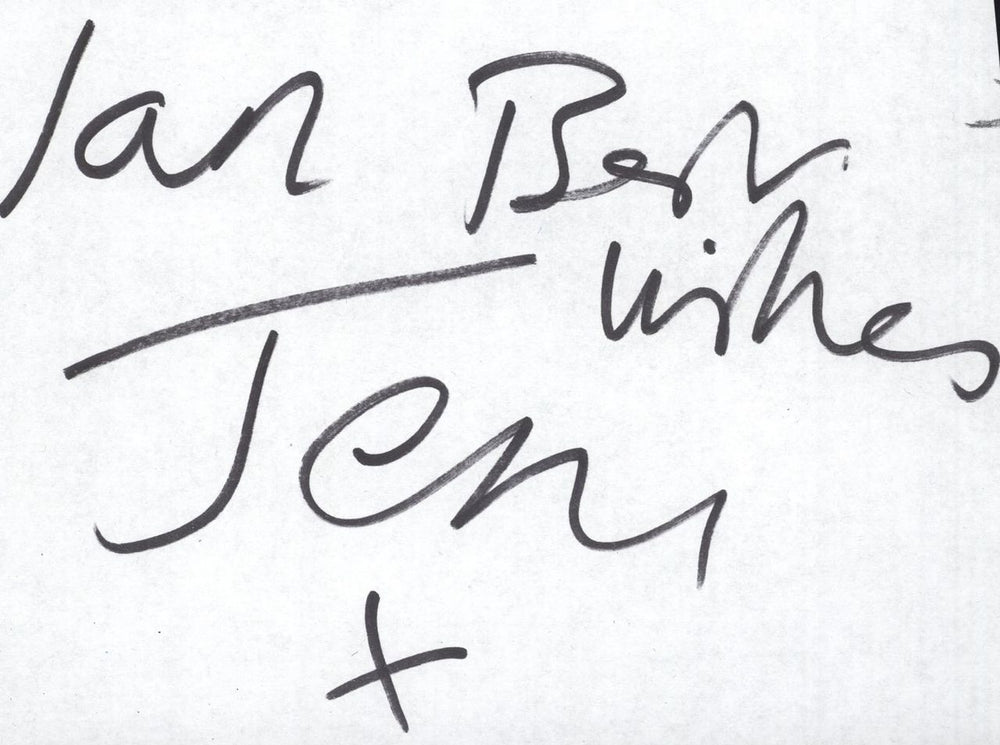 Ian Best
wishes
Jen
x